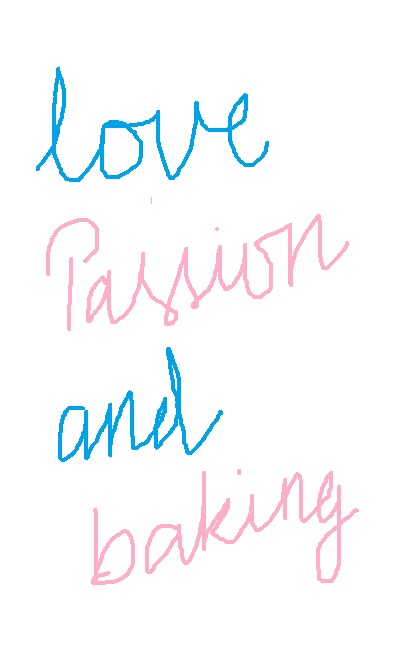 love
Passion
and
baking